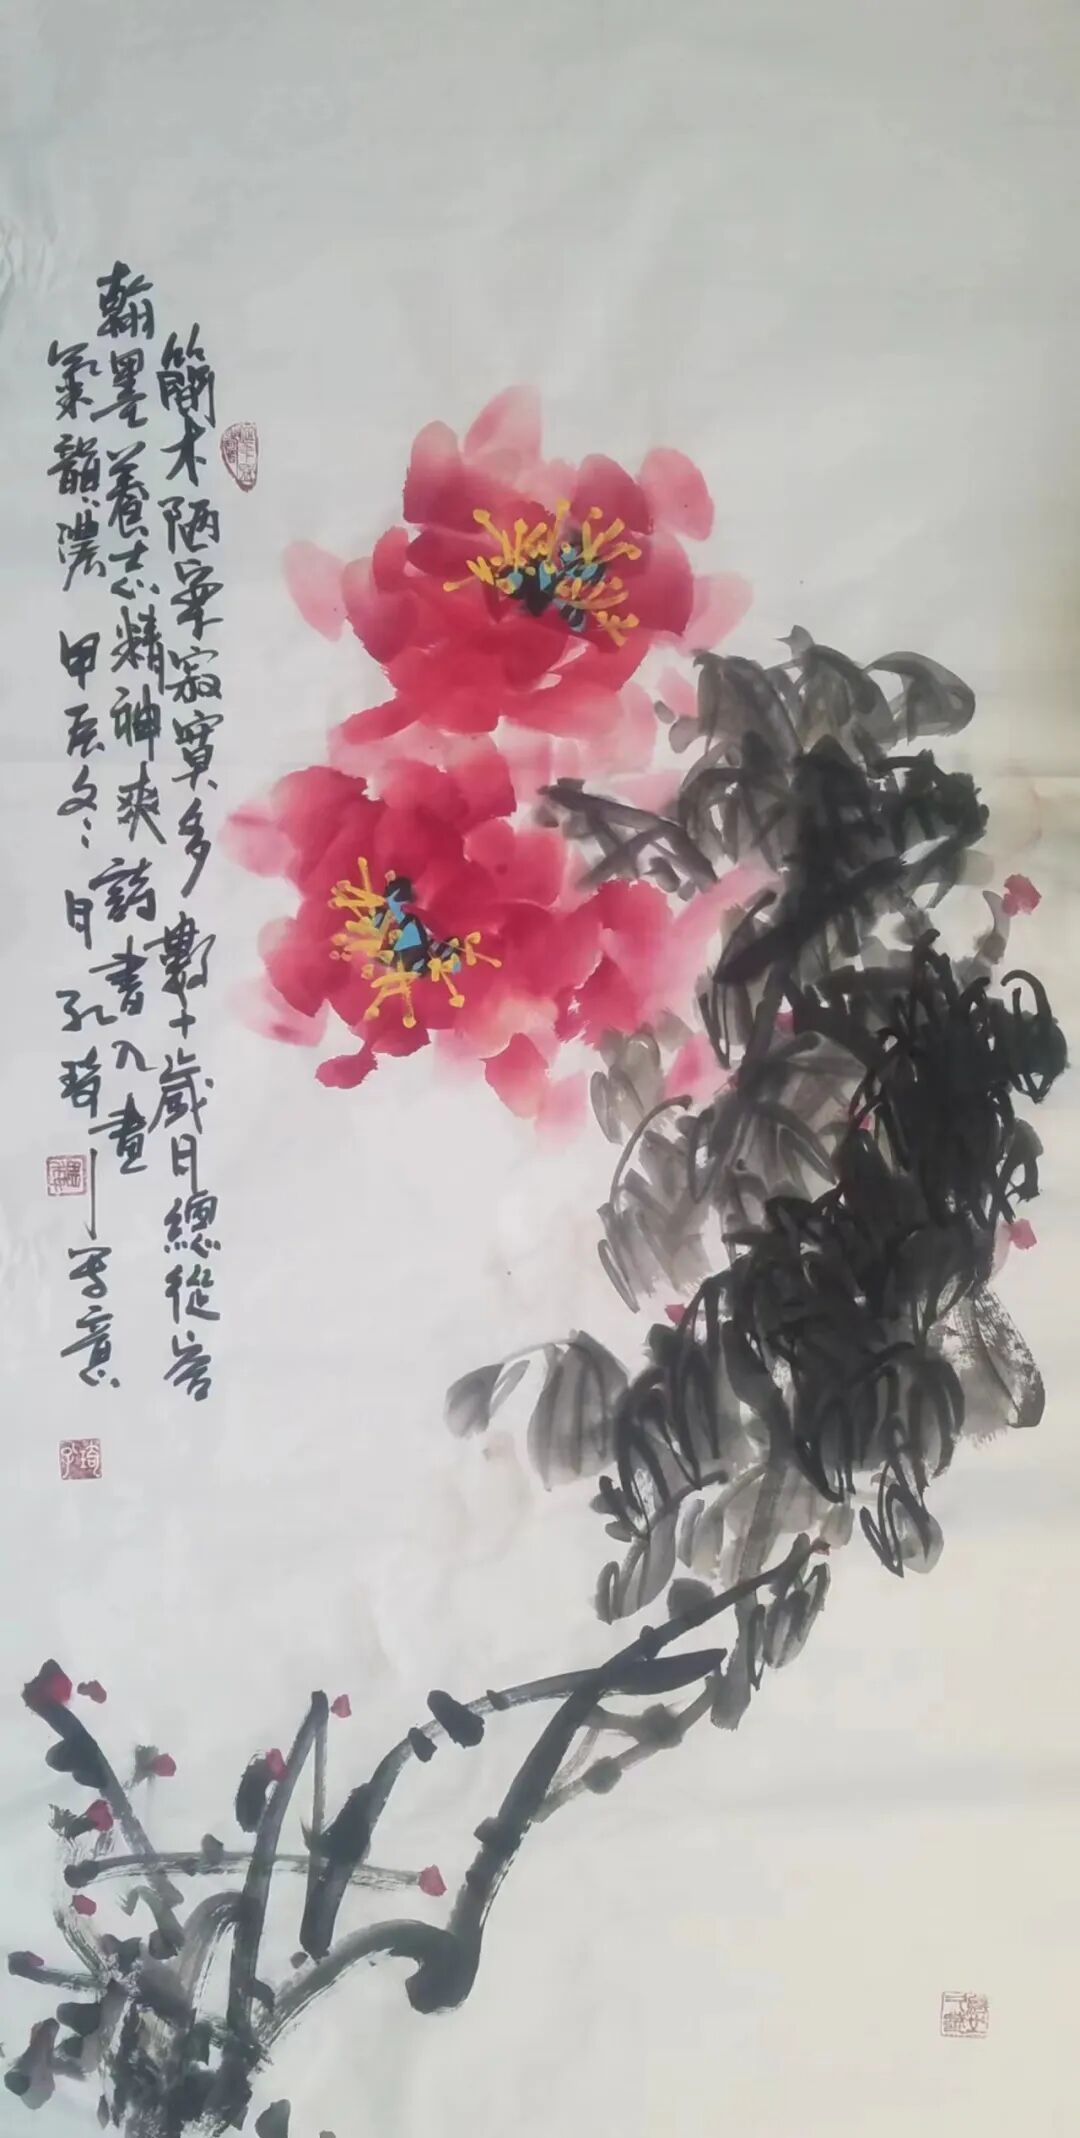 简木陋室寂寞多數十歲月總從容
翰墨養志精神爽詩書入畫
氣韻濃 甲辰冬月孔琦寫意
孔琦